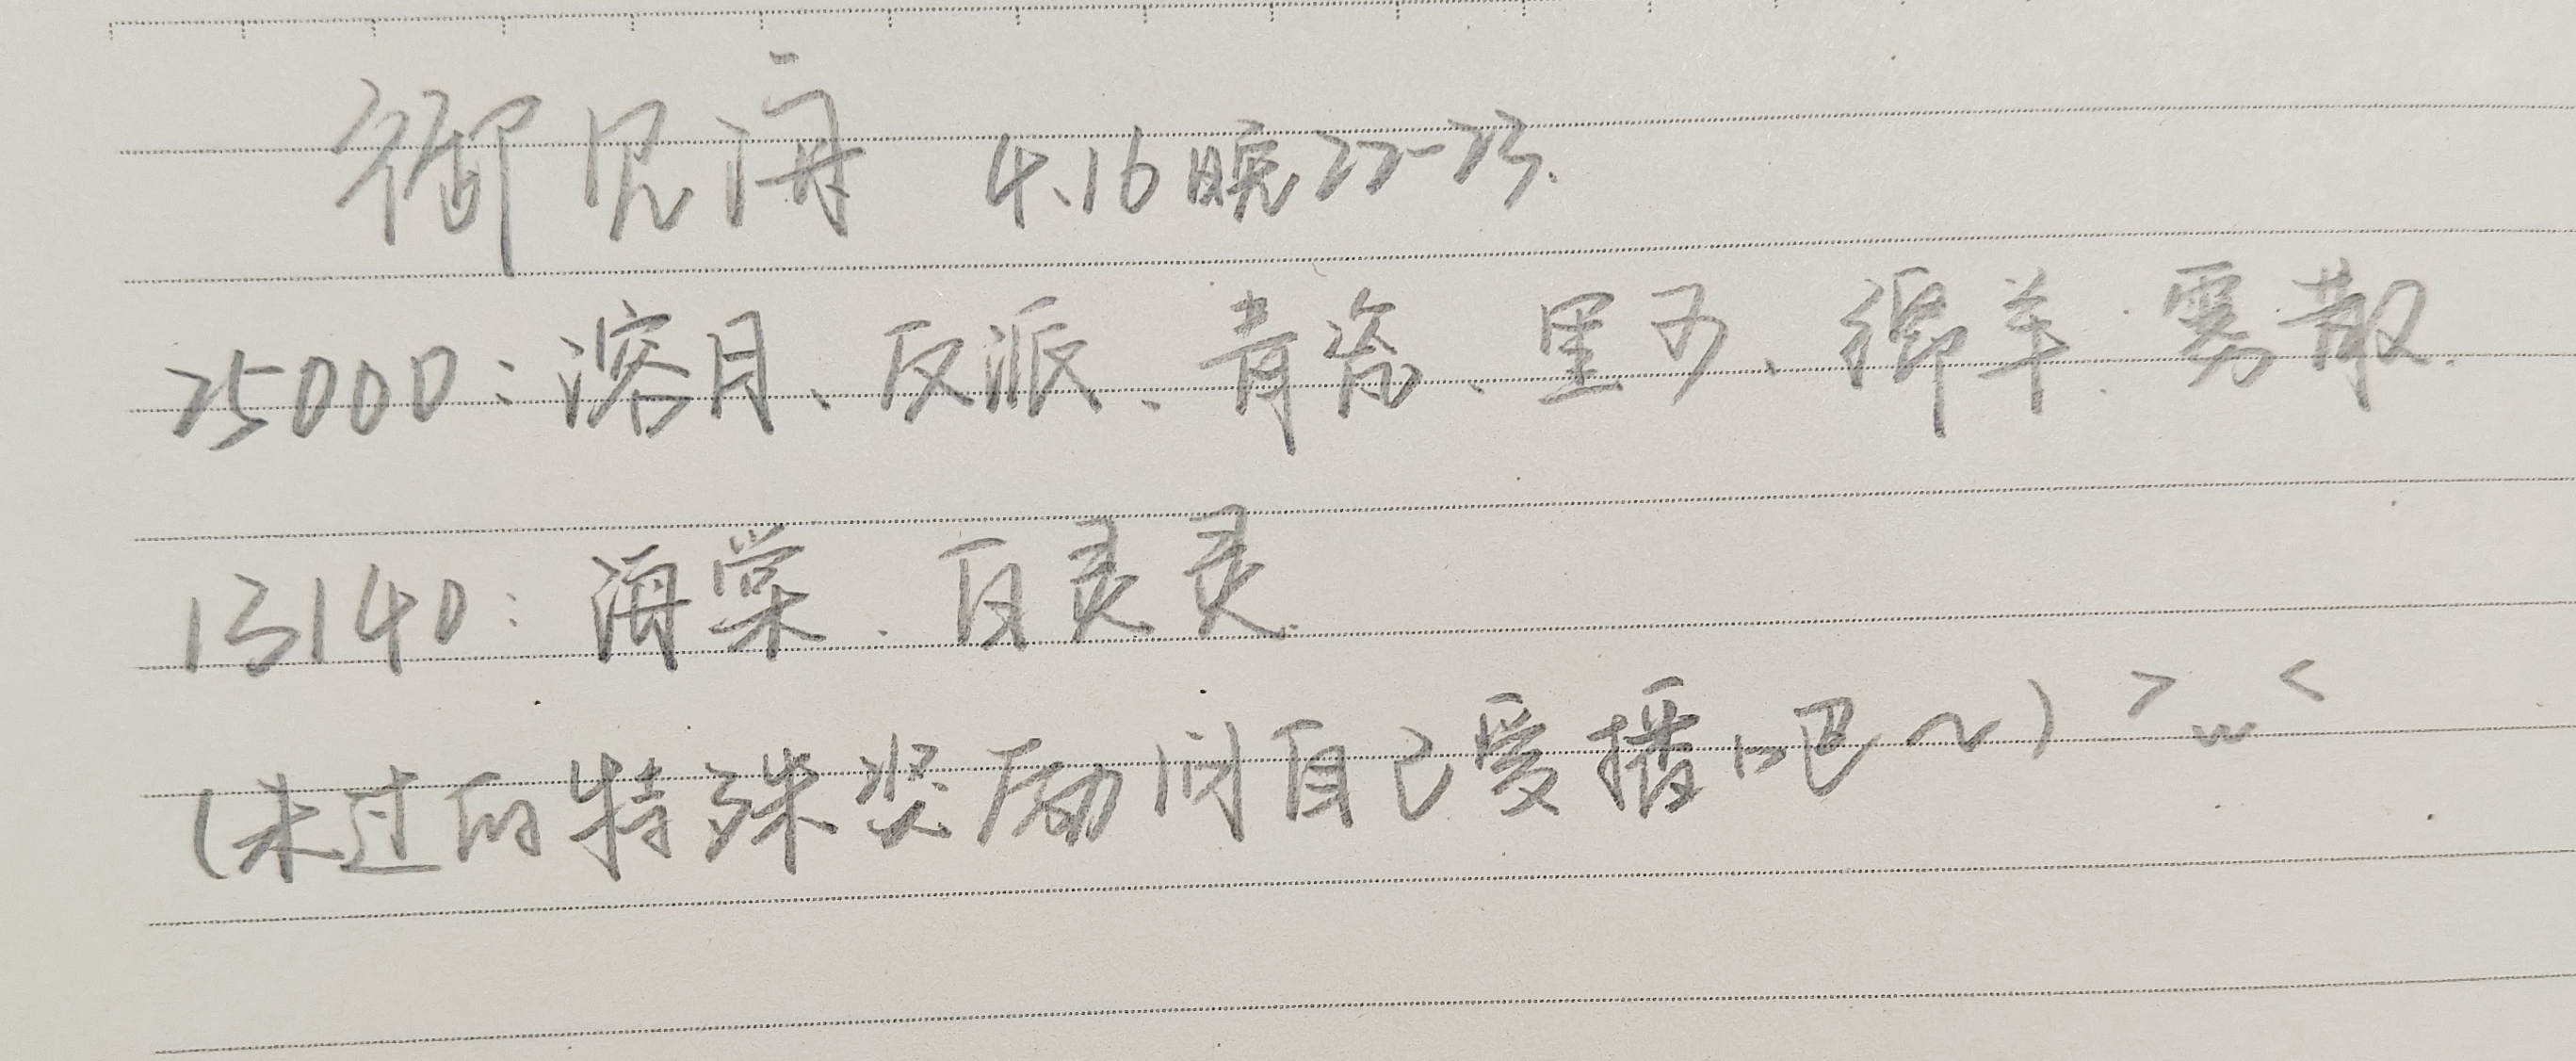 御见海 4.16晚22-23.
25000:溶月、反派、青瓷、里予、绵羊.雾散.
13140:海棠.百灵灵.
(未过的特殊奖励问自己爱播吧~) >w<